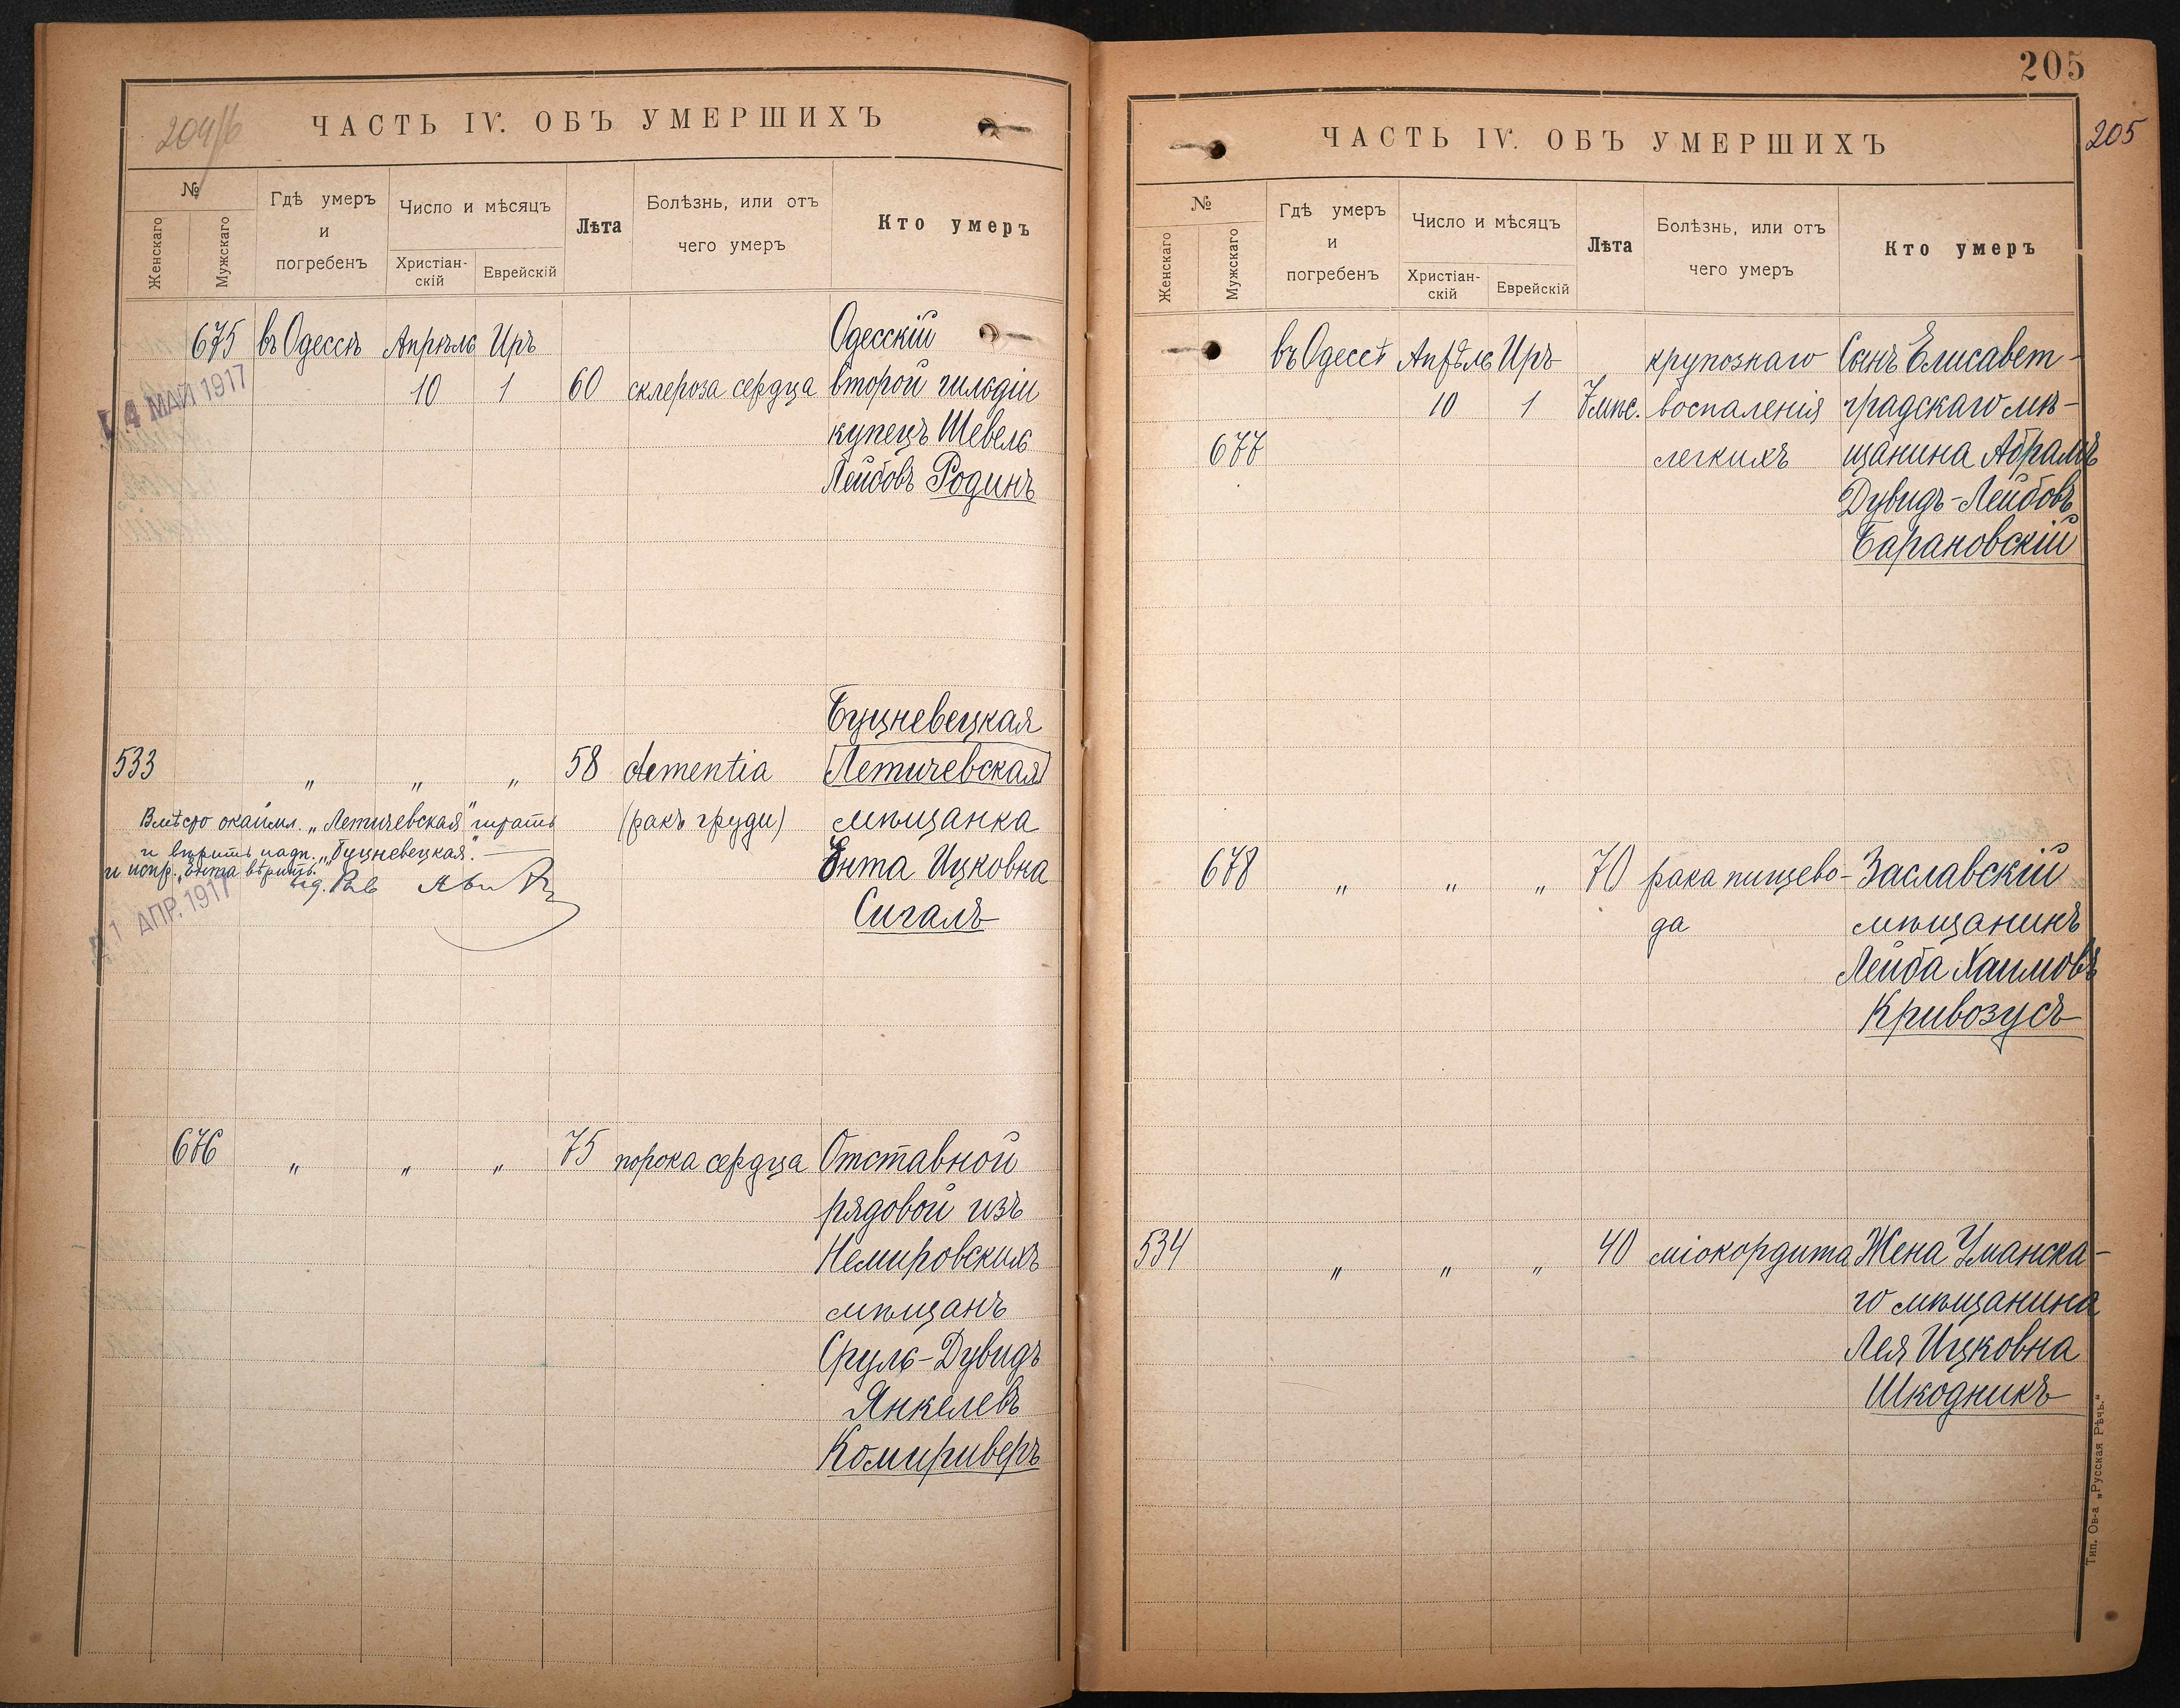 204/б
ЧАСТЬ IV. ОБЪ УМЕРШИХЪ
№
Женскаго
Мужскаго
Гдѣ умеръ
и
погребенъ
Число и мѣсяцъ
Христіан-
скій
Еврейскій
Лѣта
Болѣзнь, или отъ
чего умеръ
Кто умеръ
675 въ Одессѣ Апрѣль Иръ Одесскій
10 1 60 склероза сердца второй гильдіи
купецъ Шевель
Лейбовъ Родинъ
4 МАЙ 1917
Буцневецкая
533 " " " 58 dementia Летичевская
(ракъ груди) мѣщанка
Ента Ицковна
Сигалъ
Вмѣсто окаймл. „Летичевская" читать
и вѣрить надп. „Буцневецкая".
и испр. „Ента" вѣрить.
1 АПР. 1917
676 " " " 75 порока сердца Отставной
рядовой изъ
Немировскихъ
мѣщанъ
Сруль-Дувидъ
Янкелевъ
Комириверъ
205
205
ЧАСТЬ IV. ОБЪ УМЕРШИХЪ
№
Женскаго
Мужскаго
Гдѣ умеръ
и
погребенъ
Число и мѣсяцъ
Христіан-
скій
Еврейскій
Лѣта
Болѣзнь, или отъ
чего умеръ
Кто умеръ
въ Одессѣ Апрѣль Иръ крупознаго Сынъ Елисавет-
10 1 7 мѣс. воспаленія градскаго мѣ-
677 легкихъ щанина Абрамъ
Дувидъ-Лейбовъ
Барановскій
678 " " " 70 рака пищево- Заславскій
да мѣщанинъ
Лейба Хаимовъ
Кривозусъ
534 " " " 40 міокордита Жена Уманска-
го мѣщанина
Лея Ицковна
Шкодникъ
Тип. Ов-а „Русская Рѣчь."